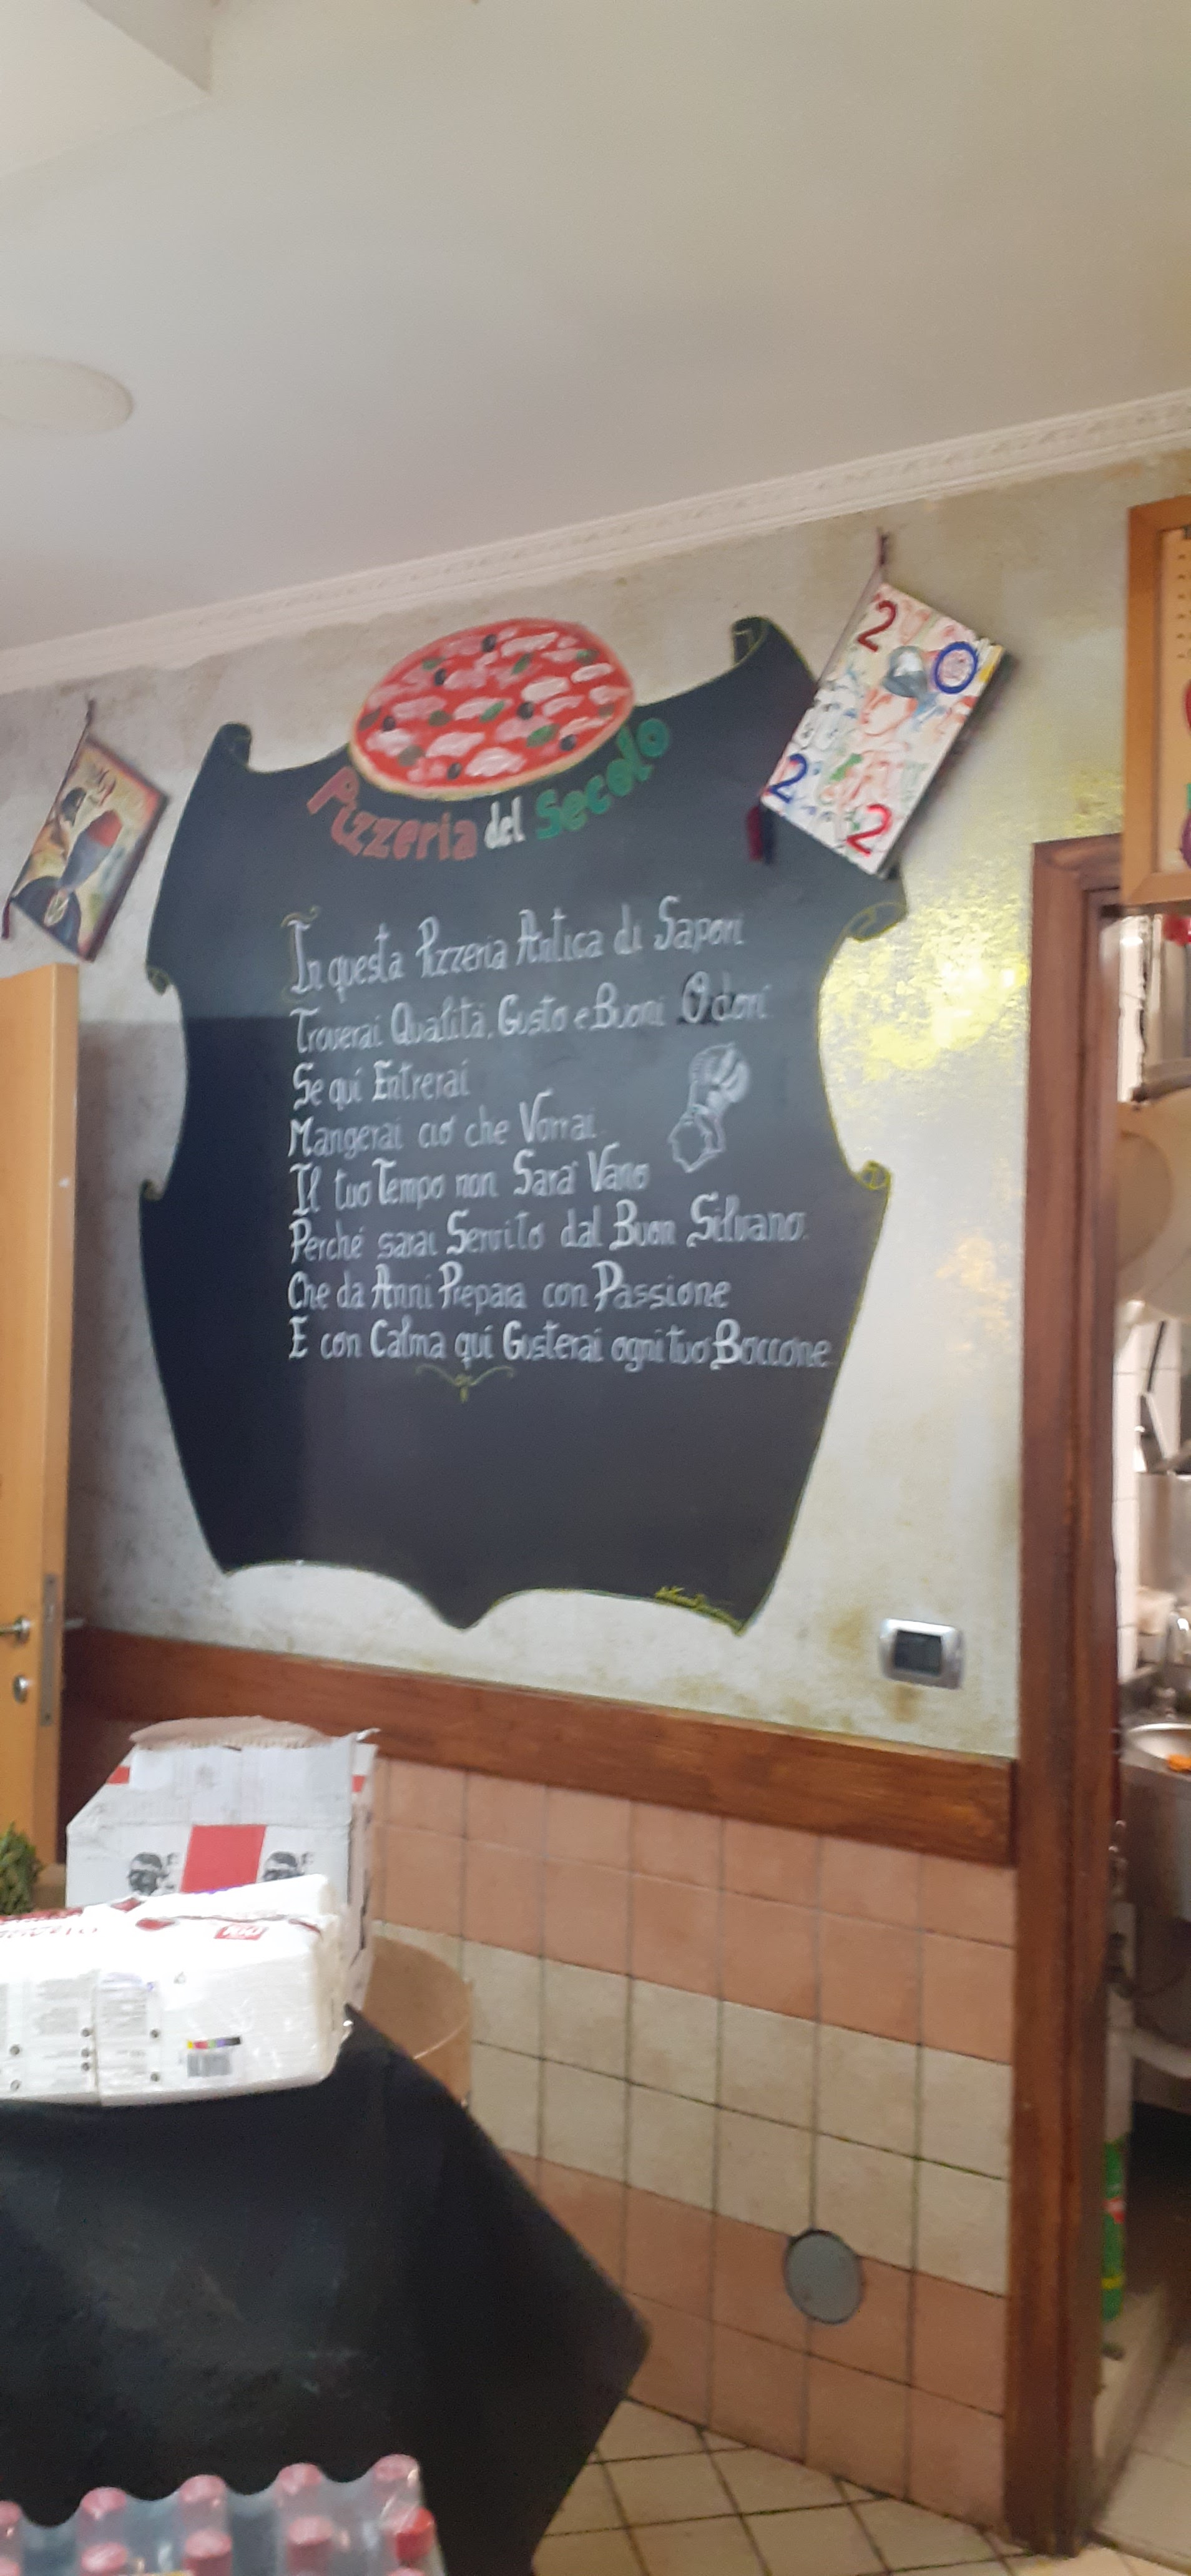 2 0
2 2
Pizzeria del Secolo
In questa Pizzeria Antica di Sapori
Troverai Qualità, Gusto e Buoni Odori
Se qui Entrerai
Mangerai ciò che Vorrai
Il tuo Tempo non Sarà Vano
Perché sarai Servito dal Buon Silvano.
Che da Anni Prepara con Passione
E con Calma qui Gusterai ogni tuo Boccone